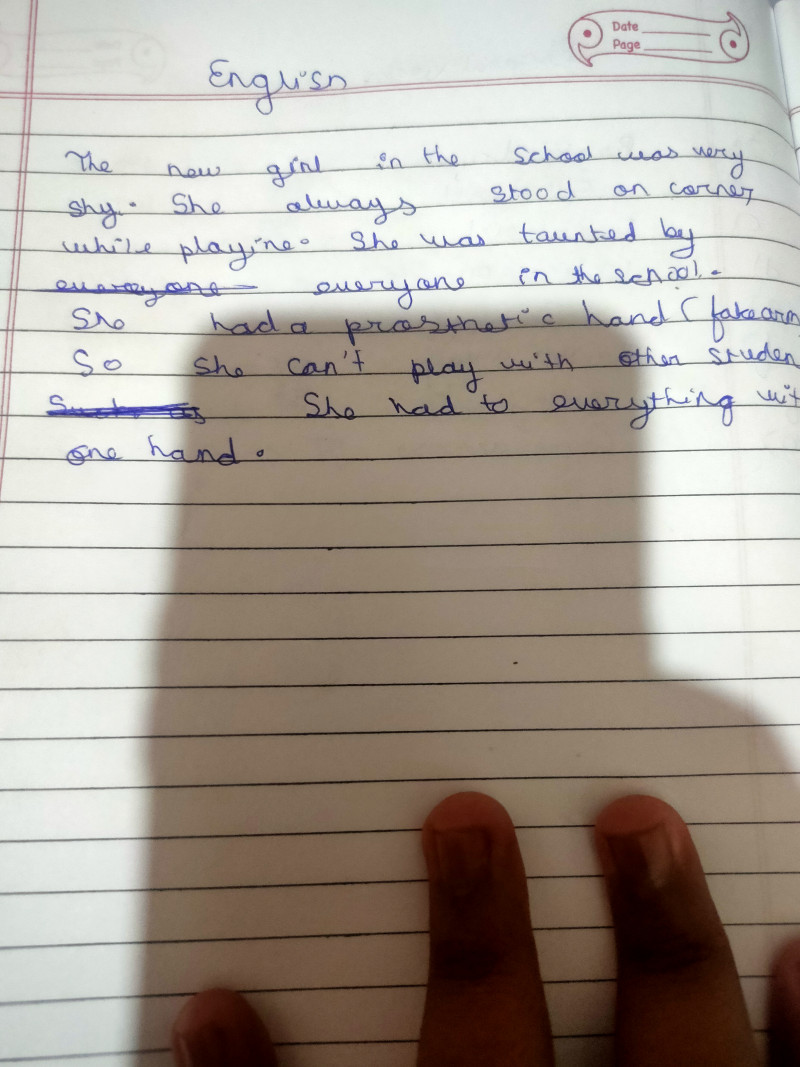 Date
Page
English
The new girl in the school was very
shy. She always stood on corner
while playine. She was taunted by
everyone in the school.
She had a prosthetic hand (fake arm
So she can't play with other studen
She had to everything wit
one hand.